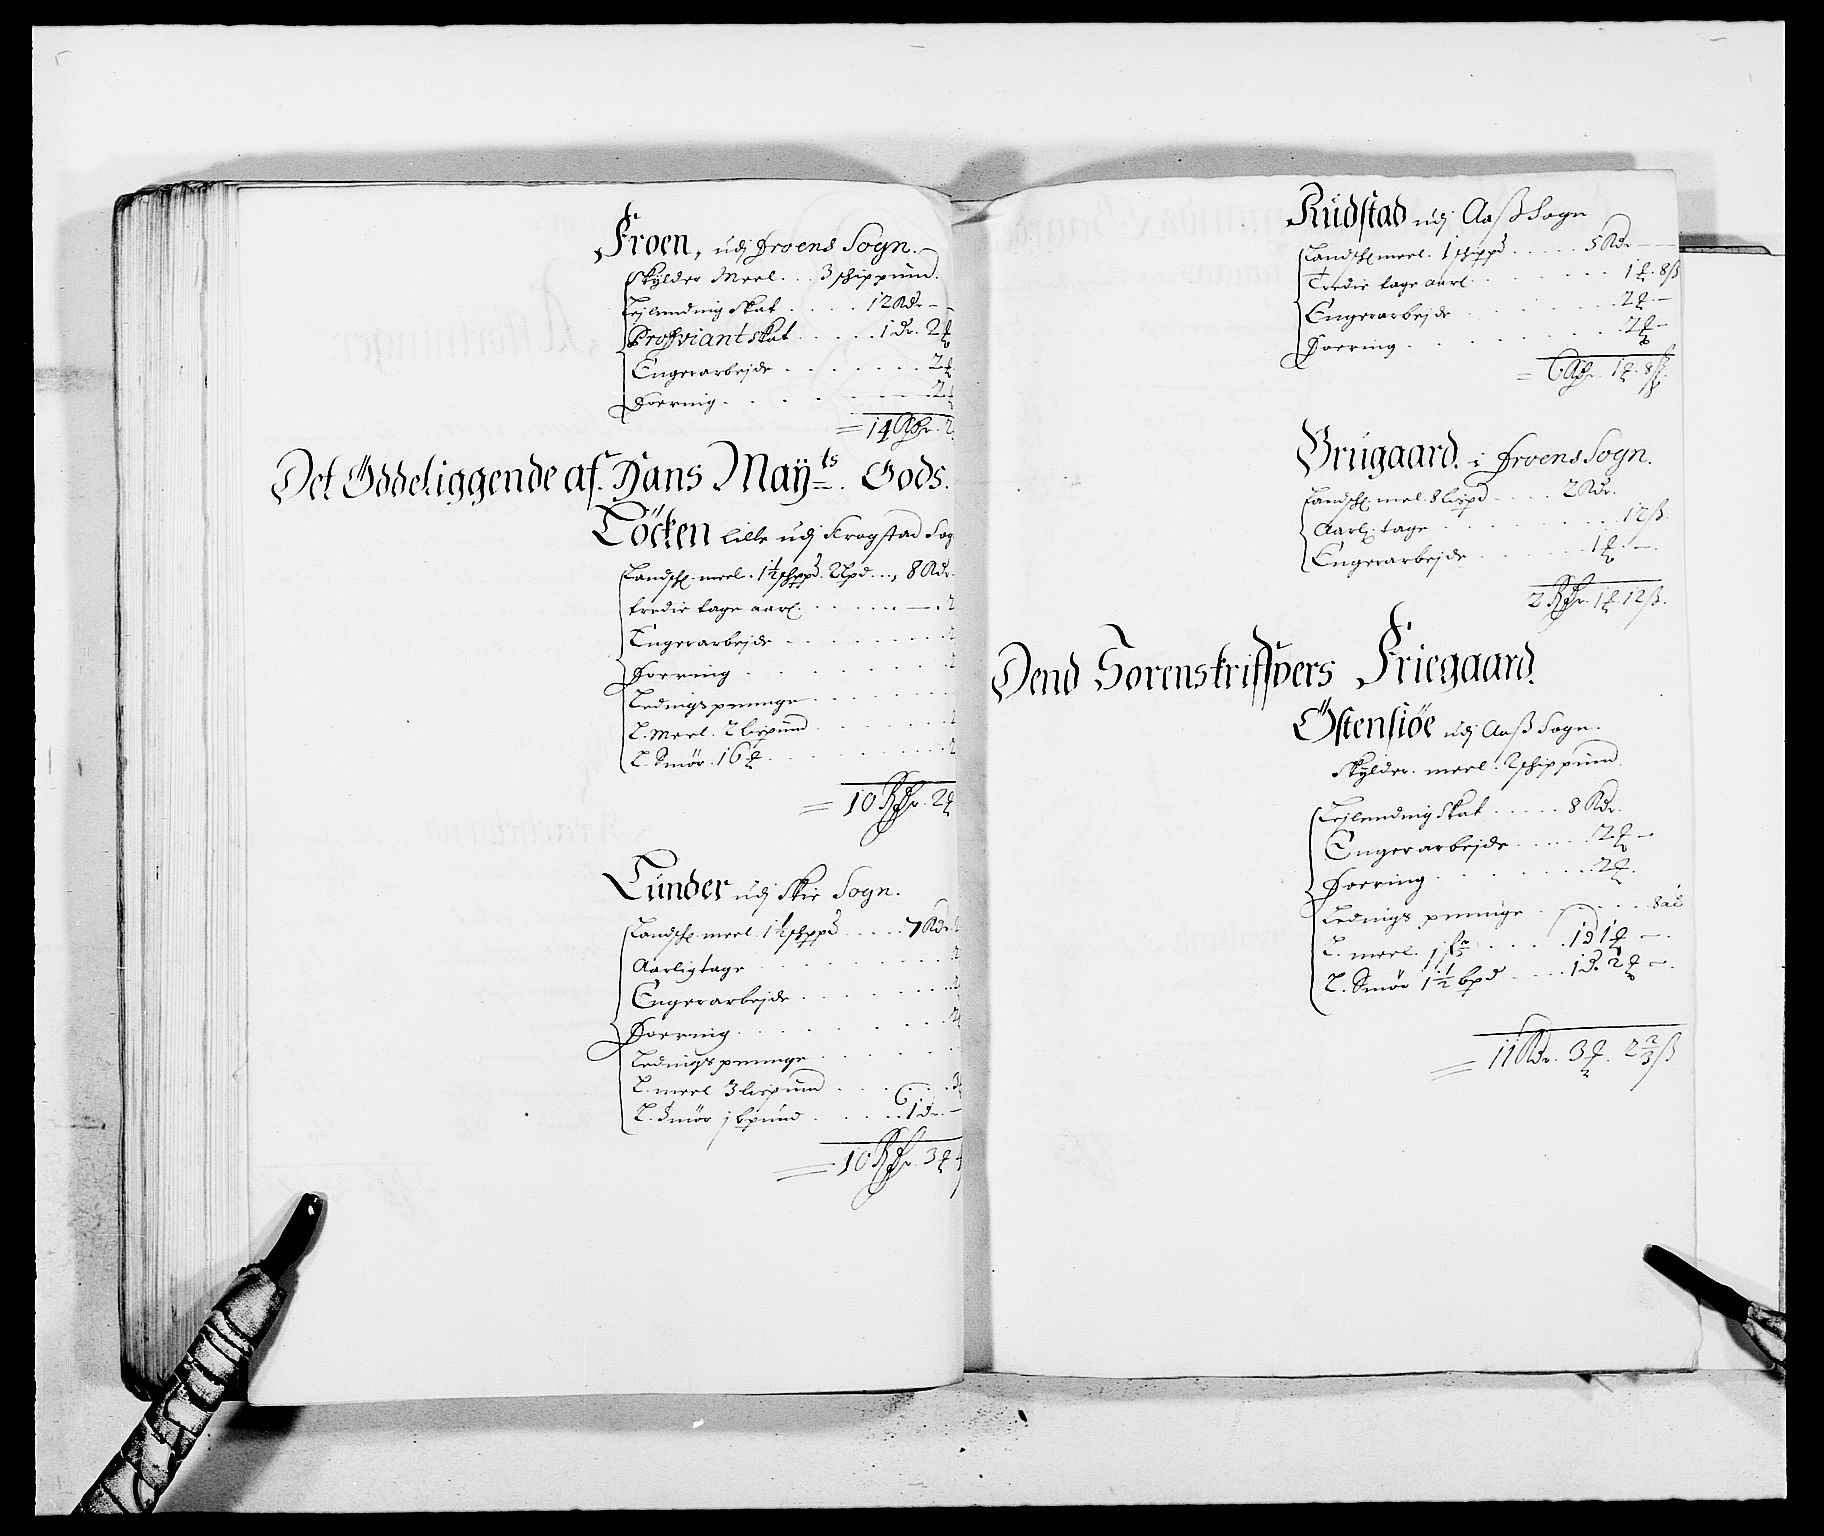 Froen, udj Froens Sogn.
Skylder Meel . . . 3 schippund.
Lejlending Skat . . . . . 12 Rdr —
Proffviant skat . . . . . 1 dr. 2
Engerarbejde . . . . . . . 2
Foering . . . . . . . . . 2
= 14 Rdr. 2
Det Öddeliggende af. Hans Maÿts. Gods.
Löcken lille udj Krogstad Sog
Landsk. meel. 1½ schpd. 2 lpd . . . 8 Rdr.
tredie tage aarl. . . . . . — . 2
Engerarbejde . . . . . . . . 2
Foering . . . . . . . . . 2
Ledingspenninge . . . . . . .
L. Meel. 2 lispund . . . . . .
L. Smör. 16 . . . . . . . . 2
= 10 Rdr. 2
Lunder udj Skie Sogn.
Landsk. meel. 1½ schpd . . . . 7 Rdr
Aarlig tage . . . . . . . . .
Engerarbejde . . . . . . . . 2
Foering . . . . . . . . . 2
Ledingspenninge . . . . . . .
L. meel 3 lispund . . . . . 3
L. Smör j bpund . . . . . 1 dr. —
= 10 Rdr. 3
Rudstad udj Aass Sogn
Landsk. meel. 1 schippd . . . . 5 Rdr — —
Tredie tage aarl. . . . . . . . 1 . 8 ß
Engerarbejde . . . . . . . . 2 —
Foering . . . . . . . . . 2 —
= 6 Rdr. 1 . 8 ß.
Brugaard. i Froens Sogn.
Landsk. mel. 8 lispd . . . . . 2 Rdr.
Aarl. tage . . . . . . . . . 12 ß.
Engerarbejde . . . . . . . 1 . —.
2 Rdr. 1 12 ß.
Dend Sorenskriffvers Friegaard.
Östensiöe udj Aass Sogn.
Skylder. meel. 2 schippund.
Lejlending Skat . . . . . 8 Rdr.
Engerarbejde . . . . . . 2 —
Foering . . . . . . . . . 2 .
Ledings penninge . . . . . . 8 al
L. meel. . . . . . 1 d 1 —.
L. Smör 1½ bpd . . . . . 1 d. 2 —.
= 11 Rdr. 3 . 2⅔ ß